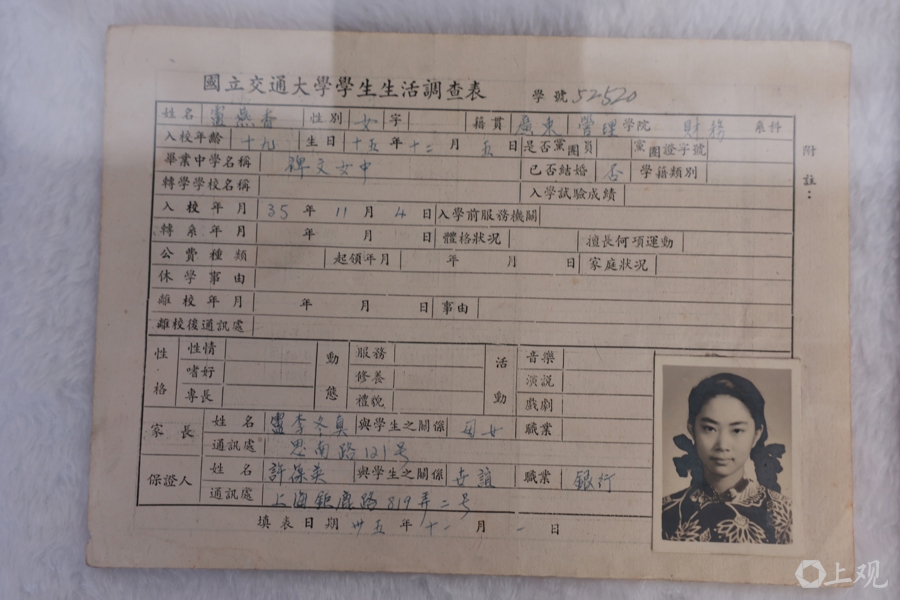 國立交通大學學生生活調查表 學號 52520
姓名 盧燕香 性別 女 字 籍貫 廣東 管理 學院 財務 系科
入校年齡 十九 生日 十五年十二月五日 是否黨團員 黨團證字號
畢業中學名稱 裨文女中 已否結婚 否 學籍類別
轉學學校名稱 入學試驗成績
入校年月 35年11月4日 入學前服務機關
轉系年月 年 月 日 體格狀況 擅長何項運動
公費種類 起領年月 年 月 日 家庭狀況
休學事由
離校年月 年 月 日 事由
離校後通訊處
性格 性情 動態 服務 活動 音樂
嗜好 修養 演説
專長 禮貌 戲劇
家長 姓名 盧李冬真 與學生之關係 母女 職業
通訊處 思南路121号
保證人 姓名 許葆英 與學生之關係 世誼 職業 銀行
通訊處 上海鉅鹿路819弄二号
填表日期 卅五年十一月一日
附註：
上观